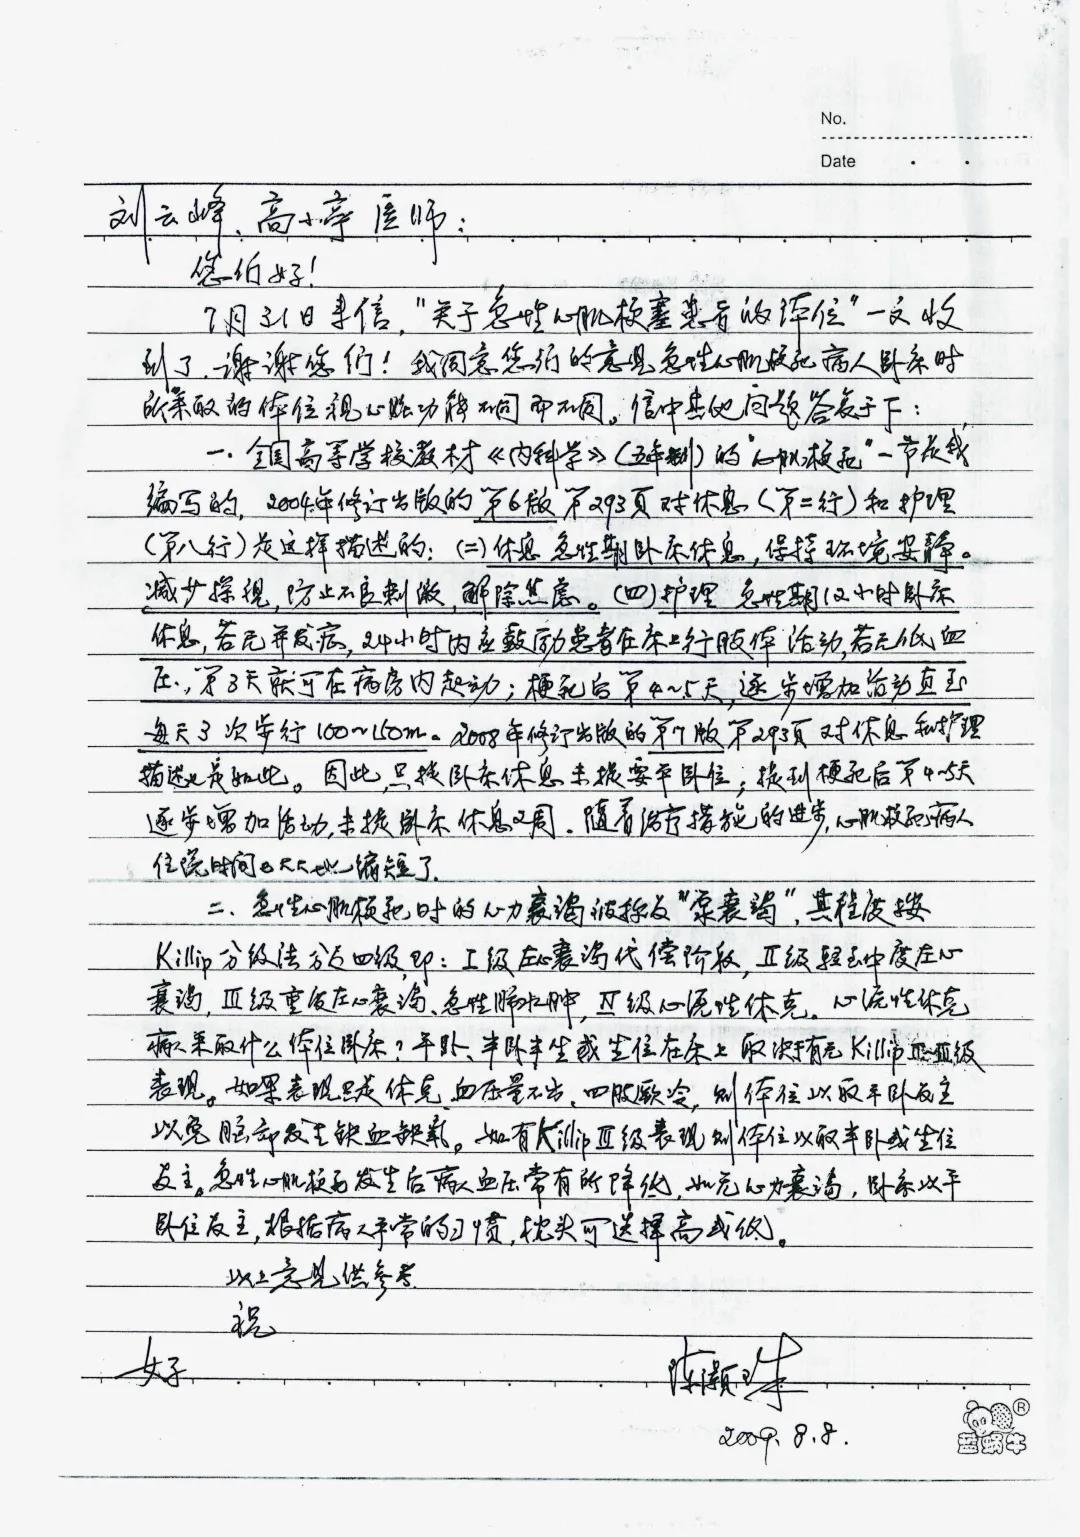 No.
Date
刘云峰、高小亭医师：
您们好！
7月31日来信，"关于急性心肌梗塞患者的体位"一文收
到了，谢谢您们！我同意您们的意见急性心肌梗死病人卧床时
所采取的体位视心脏功能不同而不同。信中其他问题答复于下：
一、全国高等学校教材《内科学》（五年制）的"心肌梗死"一节是我
编写的，2004年修订出版的第6版第293页对休息（第二行）和护理
（第八行）是这样描述的：（二）休息 急性期卧床休息，保持环境安静。
减少探视，防止不良刺激，解除焦虑。（四）护理 急性期12小时卧床
休息，若无并发症，24小时内应鼓励患者在床上行肢体活动，若无低血
压，第3天就可在病房内起动；梗死后第4~5天，逐步增加活动直至
每天3次步行100~150m。2008年修订出版的第7版第293页对休息和护理
描述也是如此。因此，只提卧床休息未提要平卧位；提到梗死后第4~5天
逐步增加活动，未提卧床休息2周。随着治疗措施的进步，心肌梗死病人
住院时间也大大地缩短了。
二、急性心肌梗死时的心力衰竭被称为"泵衰竭"，其程度按
Killip分级法分为四级，即：Ⅰ级左心衰竭代偿阶段，Ⅱ级轻至中度左心
衰竭，Ⅲ级重度左心衰竭、急性肺水肿，Ⅳ级心源性休克。心源性休克
病人采取什么体位卧床？平卧、半卧半坐或坐位在床上取决于有无Killip Ⅲ级
表现。如果表现只是休克，血压量不出、四肢厥冷，则体位以取平卧为主
以免脑部发生缺血缺氧。如有Killip Ⅲ级表现则体位以取半卧或坐位
为主。急性心肌梗死发生后病人血压常有所降低，如无心力衰竭，卧床以平
卧位为主，根据病人平常的习惯，枕头可选择高或低。
以上意见供参考
祝
好
陈灏珠
2009.8.8.
蓝蜗牛®